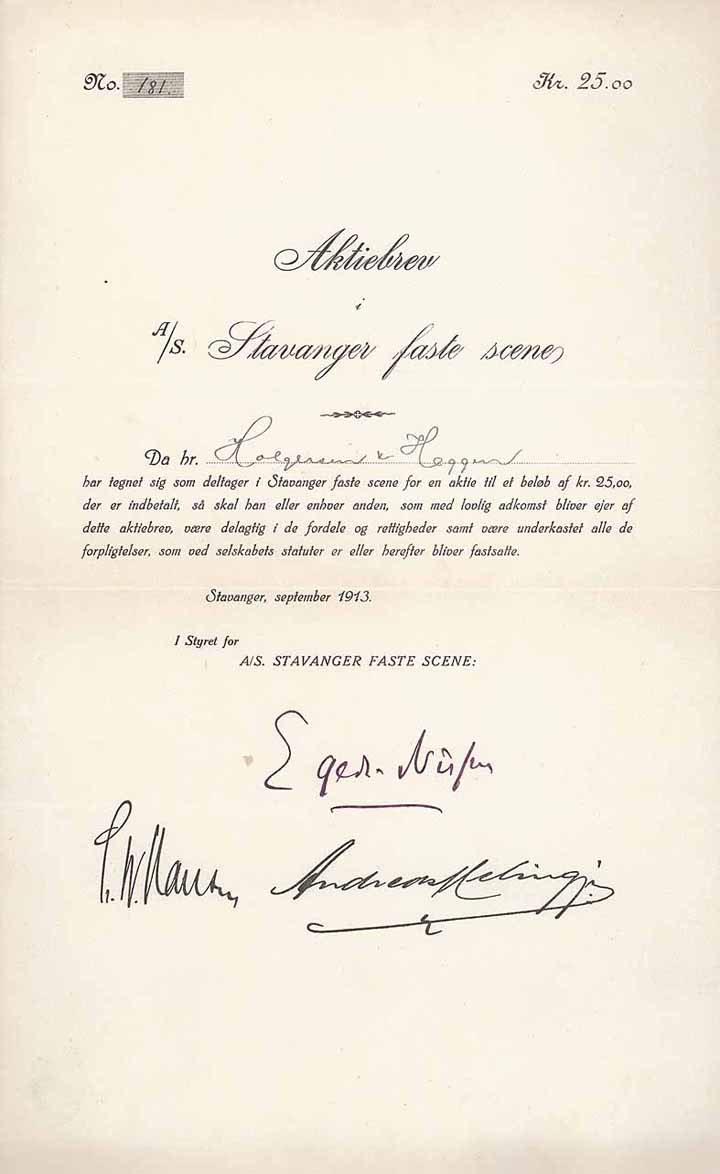 No. 181. Kr. 25.00
Aktiebrev
i
A/S. Stavanger faste scene
Da hr. Holgersen & Heggen
har tegnet sig som deltager i Stavanger faste scene for en aktie til et beløb af kr. 25,00,
der er indbetalt, så skal han eller enhver anden, som med lovlig adkomst bliver ejer af
dette aktiebrev, være delagtig i de fordele og rettigheder samt være underkastet alle de
forpligtelser, som ved selskabets statuter er eller herefter bliver fastsatte.
Stavanger, september 1913.
I Styret for
A/S. STAVANGER FASTE SCENE:
Andreas